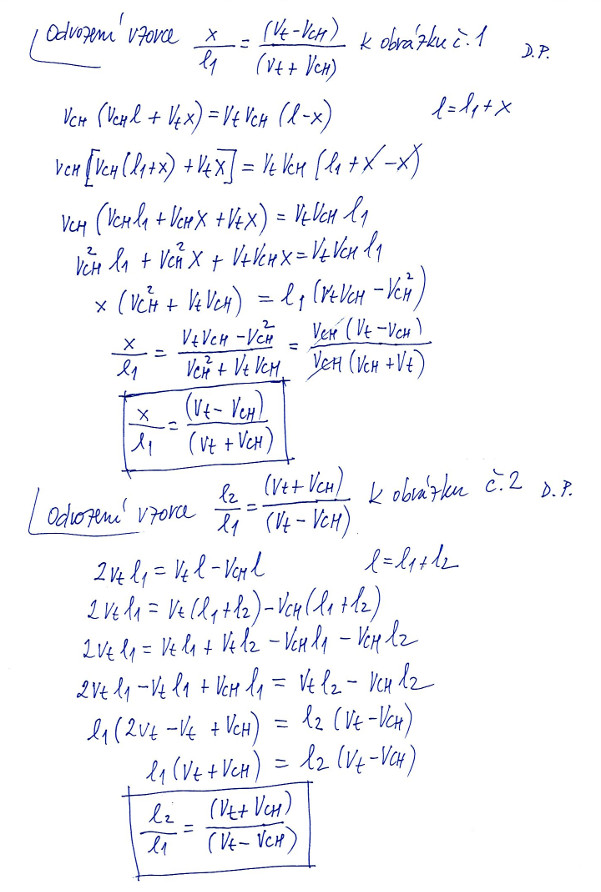 Odvození vzorce x/l₁ = (Vt-VCH)/(Vt+VCH) k obrázku č.1 D.P.
VCH (VCH l + Vt x) = Vt VCH (l-x) l = l₁+x
VCH [VCH (l₁+x) + Vt x] = Vt VCH (l₁+x-x)
VCH (VCH l₁ + VCH x + Vt x) = Vt VCH l₁
VCH² l₁ + VCH² x + Vt VCH x = Vt VCH l₁
x (VCH² + Vt VCH) = l₁ (Vt VCH - VCH²)
x/l₁ = (Vt VCH - VCH²)/(VCH² + Vt VCH) = VCH (Vt-VCH)/VCH (VCH+Vt)
x/l₁ = (Vt-VCH)/(Vt+VCH)
Odvození vzorce l₂/l₁ = (Vt+VCH)/(Vt-VCH) k obrázku č.2 D.P.
2Vt l₁ = Vt l - VCH l l = l₁+l₂
2Vt l₁ = Vt (l₁+l₂) - VCH (l₁+l₂)
2Vt l₁ = Vt l₁ + Vt l₂ - VCH l₁ - VCH l₂
2Vt l₁ - Vt l₁ + VCH l₁ = Vt l₂ - VCH l₂
l₁ (2Vt - Vt + VCH) = l₂ (Vt-VCH)
l₁ (Vt+VCH) = l₂ (Vt-VCH)
l₂/l₁ = (Vt+VCH)/(Vt-VCH)